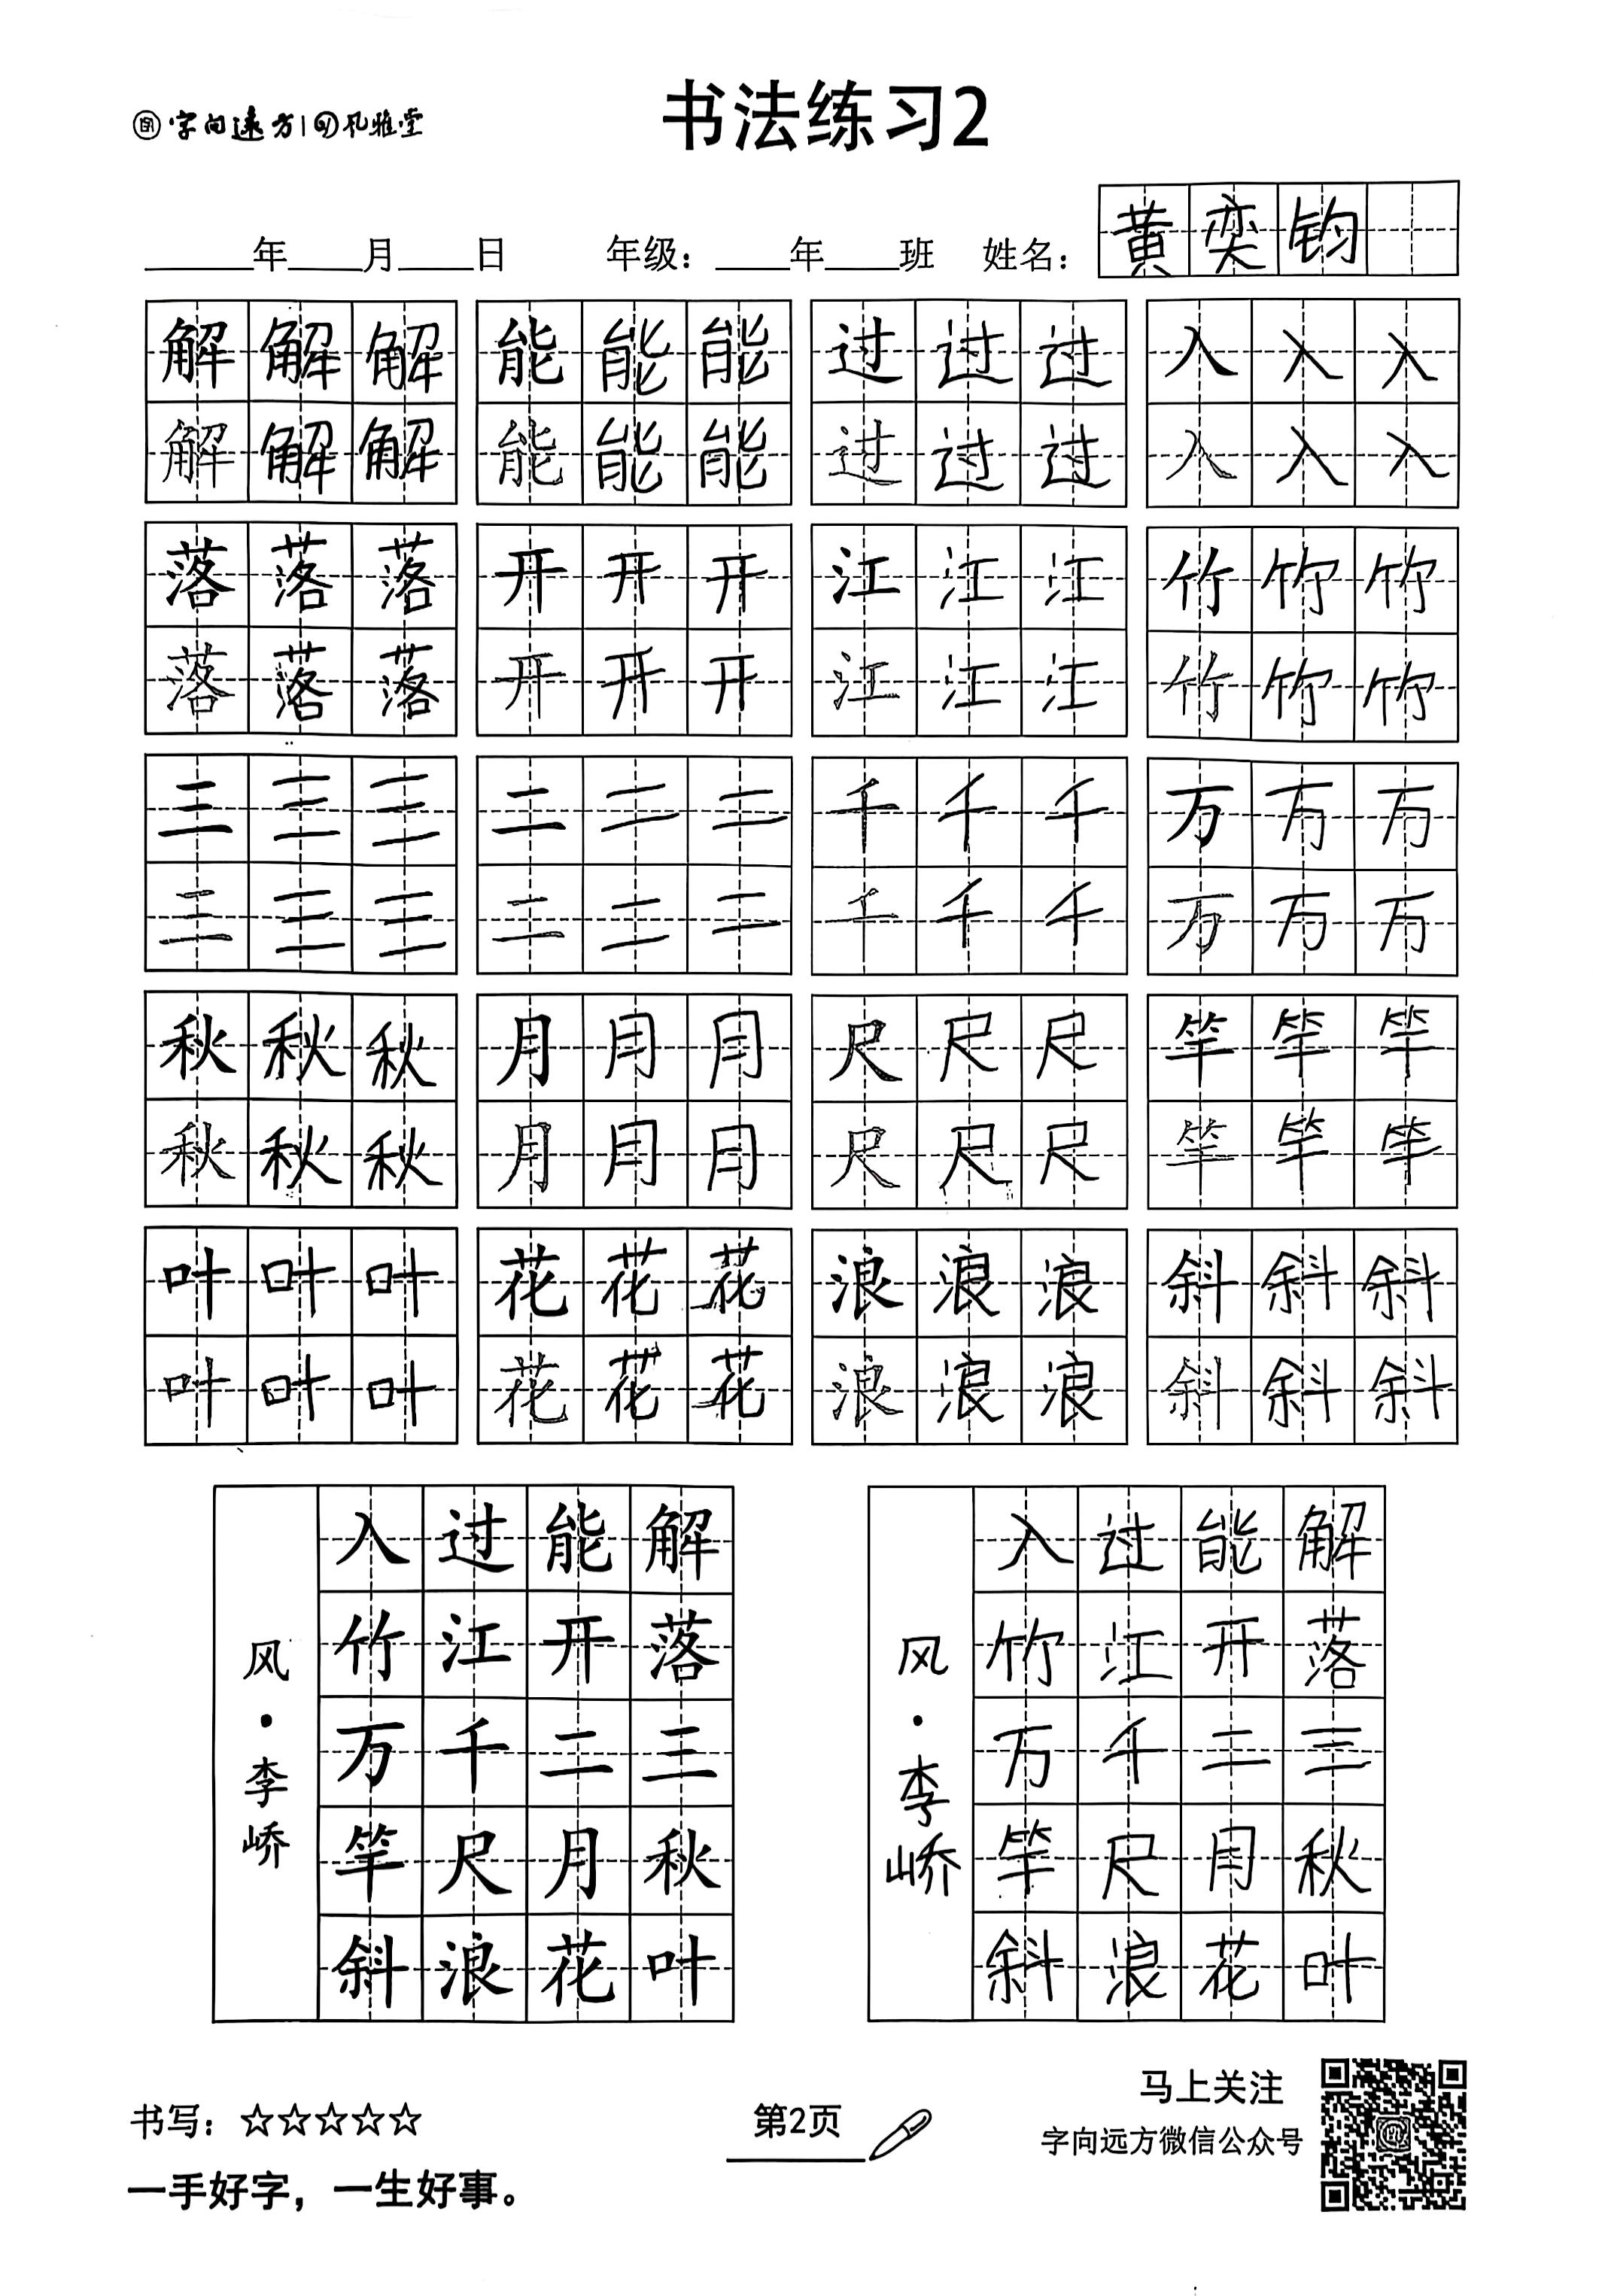 字向远方|孔雅堂
书法练习2
年 月 日 年级： 年 班 姓名：黄奕钧
解解解 能能能 过过过 入入入
解解解 能能能 过过过 入入入
落落落 开开开 江江江 竹竹竹
落落落 开开开 江江江 竹竹竹
三三三 二二二 千千千 万万万
三三三 二二二 千千千 万万万
秋秋秋 月月月 尺尺尺 竿竿竿
秋秋秋 月月月 尺尺尺 竿竿竿
叶叶叶 花花花 浪浪浪 斜斜斜
叶叶叶 花花花 浪浪浪 斜斜斜
解落三秋叶
能开二月花
过江千尺浪
入竹万竿斜
风·李峤
解落三秋叶
能开二月花
过江千尺浪
入竹万竿斜
风·李峤
书写：☆☆☆☆☆
一手好字，一生好事。
第2页
马上关注
字向远方微信公众号